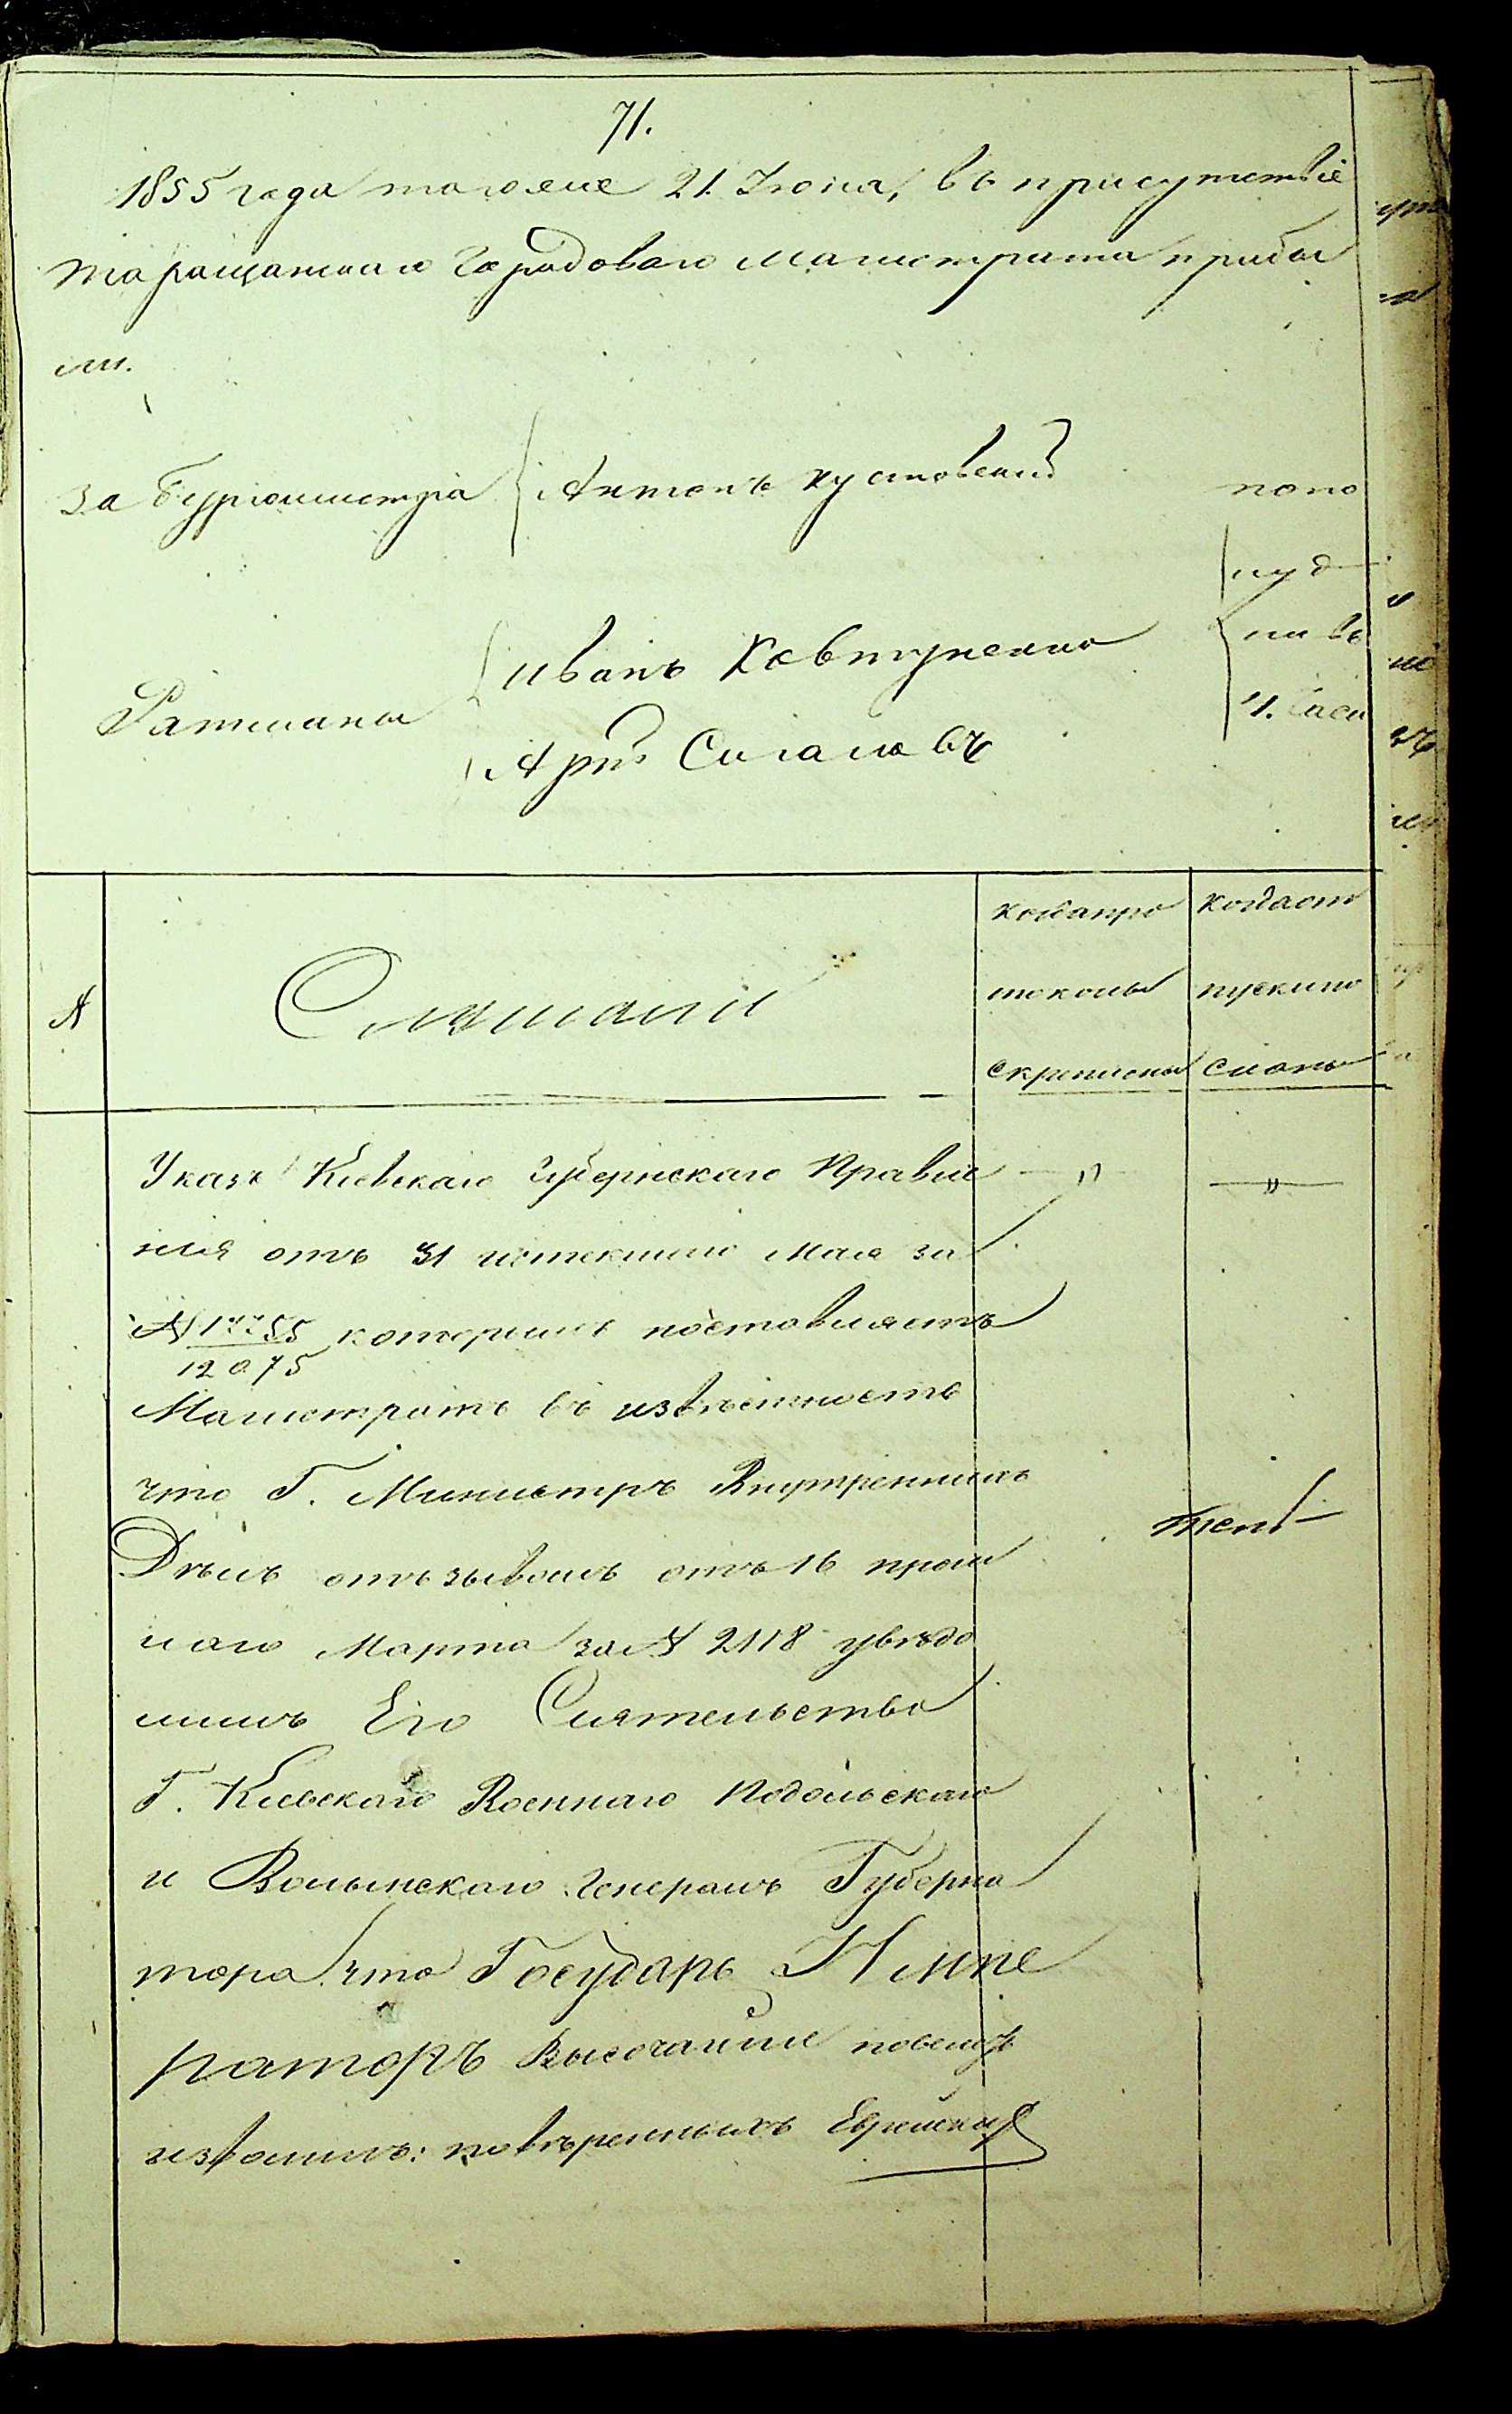 71.
1855 года тогоже 21. Июня, въ присутствіе
Таращанскаго Городоваго Магистрата прибы
ли.
За Бургомистра Антонъ Кустовскій попо
луд
Ратманы Иванъ Ковтуненко ни въ
Арій Сигаловъ 4. Часа
№ Слушали
когда про
токолы
скреплены
когда от
пуск
Указъ Кіевскаго Губернскаго Правле „ „
нія отъ 31 истекшаго Мая за
№ 17755
12075
которымъ поставляетъ
Магистратъ въ известность
что Г. Министръ Внутреннихъ
Дѣлъ отъзывомъ отъ 16 прош
лаго Марта за № 2118 увѣдо
милъ Его Сиятельство
Г. Кіевскаго Военнаго Подольскаго
и Волынскаго Генералъ Губерна
тора что Государь Импе
раторъ Высочайше повелѣть
изволилъ: повѣренныхъ Еврейских